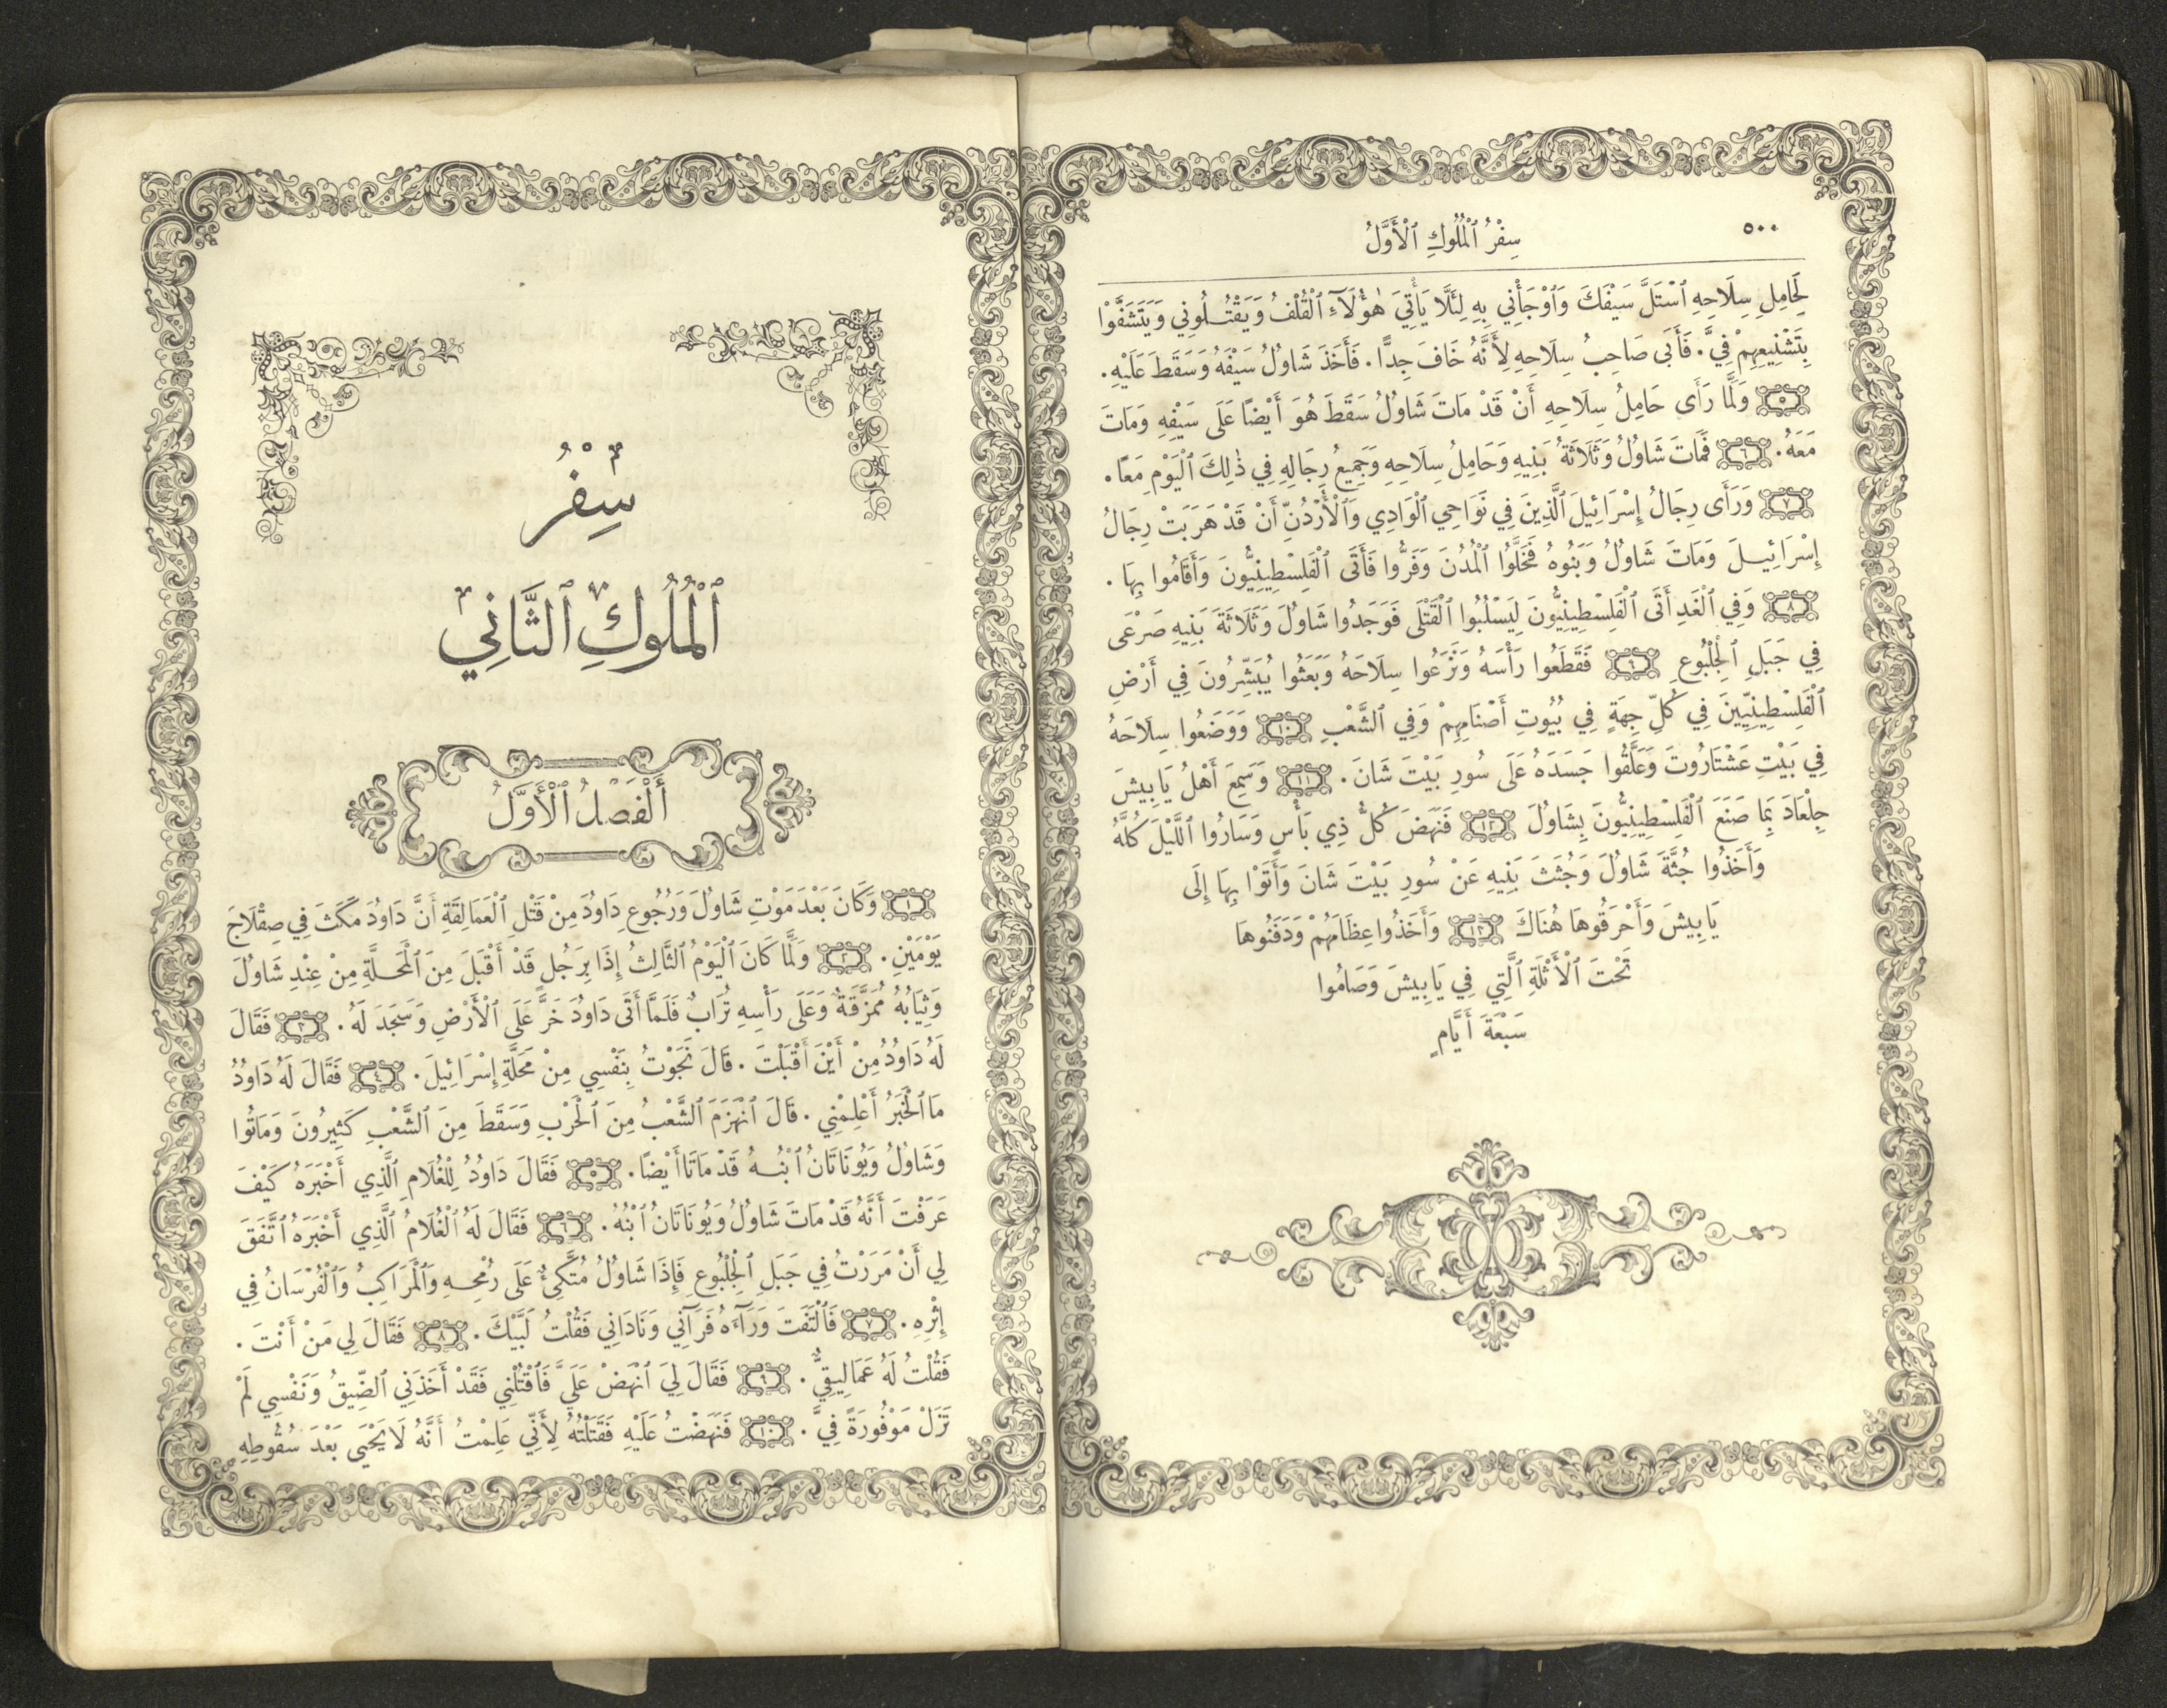 ٥٠٠
سِفْرُ ٱلْمُلُوكِ ٱلْأَوَّلُ
لِحَامِلِ سِلَاحِهِ ٱسْتَلَّ سَيْفَكَ وَٱوْجَأْنِي بِهِ لِئَلَّا يَأْتِيَ هٰؤُلَآءِ ٱلْقُلْفُ وَيَقْتُلُونِي وَيَتَشَفَّوْا
بِتَشْنِيعِهِمْ فِيَّ. فَأَبَى صَاحِبُ سِلَاحِهِ لِأَنَّهُ خَافَ جِدًّا. فَأَخَذَ شَاوُلُ سَيْفَهُ وَسَقَطَ عَلَيْهِ.
٥ وَلَمَّا رَأَى حَامِلُ سِلَاحِهِ أَنْ قَدْ مَاتَ شَاوُلُ سَقَطَ هُوَ أَيْضًا عَلَى سَيْفِهِ وَمَاتَ
مَعَهُ. ٦ فَمَاتَ شَاوُلُ وَثَلَاثَةُ بَنِيهِ وَحَامِلُ سِلَاحِهِ وَجَمِيعُ رِجَالِهِ فِي ذٰلِكَ ٱلْيَوْمِ مَعًا.
٧ وَرَأَى رِجَالُ إِسْرَائِيلَ ٱلَّذِينَ فِي نَوَاحِي ٱلْوَادِي وَٱلْأُرْدُنِّ أَنْ قَدْ هَرَبَتْ رِجَالُ
إِسْرَائِيلَ وَمَاتَ شَاوُلُ وَبَنُوهُ فَخَلَّوُا ٱلْمُدُنَ وَفَرُّوا فَأَتَى ٱلْفَلِسْطِينِيُّونَ وَأَقَامُوا بِهَا.
٨ وَفِي ٱلْغَدِ أَتَى ٱلْفَلِسْطِينِيُّونَ لِيَسْلُبُوا ٱلْقَتْلَى فَوَجَدُوا شَاوُلَ وَثَلَاثَةَ بَنِيهِ صَرْعَى
فِي جَبَلِ ٱلْجِلْبُوعِ ٩ فَقَطَعُوا رَأْسَهُ وَنَزَعُوا سِلَاحَهُ وَبَعَثُوا يُبَشِّرُونَ فِي أَرْضِ
ٱلْفَلِسْطِينِيِّينَ فِي كُلِّ جِهَةٍ فِي بُيُوتِ أَصْنَامِهِمْ وَفِي ٱلشَّعْبِ ١٠ وَوَضَعُوا سِلَاحَهُ
فِي بَيْتِ عَشْتَارُوتَ وَعَلَّقُوا جَسَدَهُ عَلَى سُورِ بَيْتَ شَانَ. ١١ وَسَمِعَ أَهْلُ يَابِيشَ
جِلْعَادَ بِمَا صَنَعَ ٱلْفَلِسْطِينِيُّونَ بِشَاوُلَ ١٢ فَنَهَضَ كُلُّ ذِي بَأْسٍ وَسَارُوا ٱللَّيْلَ كُلَّهُ
وَأَخَذُوا جُثَّةَ شَاوُلَ وَجُثَثَ بَنِيهِ عَنْ سُورِ بَيْتَ شَانَ وَأَتَوْا بِهَا إِلَى
يَابِيشَ وَأَحْرَقُوهَا هُنَاكَ ١٣ وَأَخَذُوا عِظَامَهُمْ وَدَفَنُوهَا
تَحْتَ ٱلْأَثْلَةِ ٱلَّتِي فِي يَابِيشَ وَصَامُوا
سَبْعَةَ أَيَّامٍ
سِفْرُ
ٱلْمُلُوكِ ٱلثَّانِي
أَلْفَصْلُ ٱلْأَوَّلُ
١ وَكَانَ بَعْدَ مَوْتِ شَاوُلَ وَرُجُوعِ دَاوُدَ مِنْ قَتْلِ ٱلْعَمَالِقَةِ أَنَّ دَاوُدَ مَكَثَ فِي صِقْلَاجَ
يَوْمَيْنِ. ٢ وَلَمَّا كَانَ ٱلْيَوْمُ ٱلثَّالِثُ إِذَا بِرَجُلٍ قَدْ أَقْبَلَ مِنَ ٱلْمَحَلَّةِ مِنْ عِنْدِ شَاوُلَ
وَثِيَابُهُ مُمَزَّقَةٌ وَعَلَى رَأْسِهِ تُرَابٌ فَلَمَّا أَتَى دَاوُدَ خَرَّ عَلَى ٱلْأَرْضِ وَسَجَدَ لَهُ. ٣ فَقَالَ
لَهُ دَاوُدُ مِنْ أَيْنَ أَقْبَلْتَ. قَالَ نَجَوْتُ بِنَفْسِي مِنْ مَحَلَّةِ إِسْرَائِيلَ. ٤ فَقَالَ لَهُ دَاوُدُ
مَا ٱلْخَبَرُ أَعْلِمْنِي. قَالَ ٱنْهَزَمَ ٱلشَّعْبُ مِنَ ٱلْحَرْبِ وَسَقَطَ مِنَ ٱلشَّعْبِ كَثِيرُونَ وَمَاتُوا
وَشَاوُلُ وَيُونَاتَانُ ٱبْنُهُ قَدْ مَاتَا أَيْضًا. ٥ فَقَالَ دَاوُدُ لِلْغُلَامِ ٱلَّذِي أَخْبَرَهُ كَيْفَ
عَرَفْتَ أَنَّهُ قَدْ مَاتَ شَاوُلُ وَيُونَاتَانُ ٱبْنُهُ. ٦ فَقَالَ لَهُ ٱلْغُلَامُ ٱلَّذِي أَخْبَرَهُ ٱتَّفَقَ
لِي أَنْ مَرَرْتُ فِي جَبَلِ ٱلْجِلْبُوعِ فَإِذَا شَاوُلُ مُتَّكِئٌ عَلَى رُمْحِهِ وَٱلْمَرَاكِبُ وَٱلْفُرْسَانُ فِي
إِثْرِهِ. ٧ فَٱلْتَفَتَ وَرَآءَهُ فَرَآنِي وَنَادَانِي فَقُلْتُ لَبَّيْكَ. ٨ فَقَالَ لِي مَنْ أَنْتَ.
فَقُلْتُ لَهُ عَمَالِيقِيٌّ. ٩ فَقَالَ لِيَ ٱنْهَضْ عَلَيَّ فَٱقْتُلْنِي فَقَدْ أَخَذَنِي ٱلضِّيقُ وَنَفْسِي لَمْ
تَزَلْ مَوْفُورَةً فِيَّ. ١٠ فَنَهَضْتُ عَلَيْهِ فَقَتَلْتُهُ لِأَنِّي عَلِمْتُ أَنَّهُ لَا يَحْيَى بَعْدَ سُقُوطِهِ